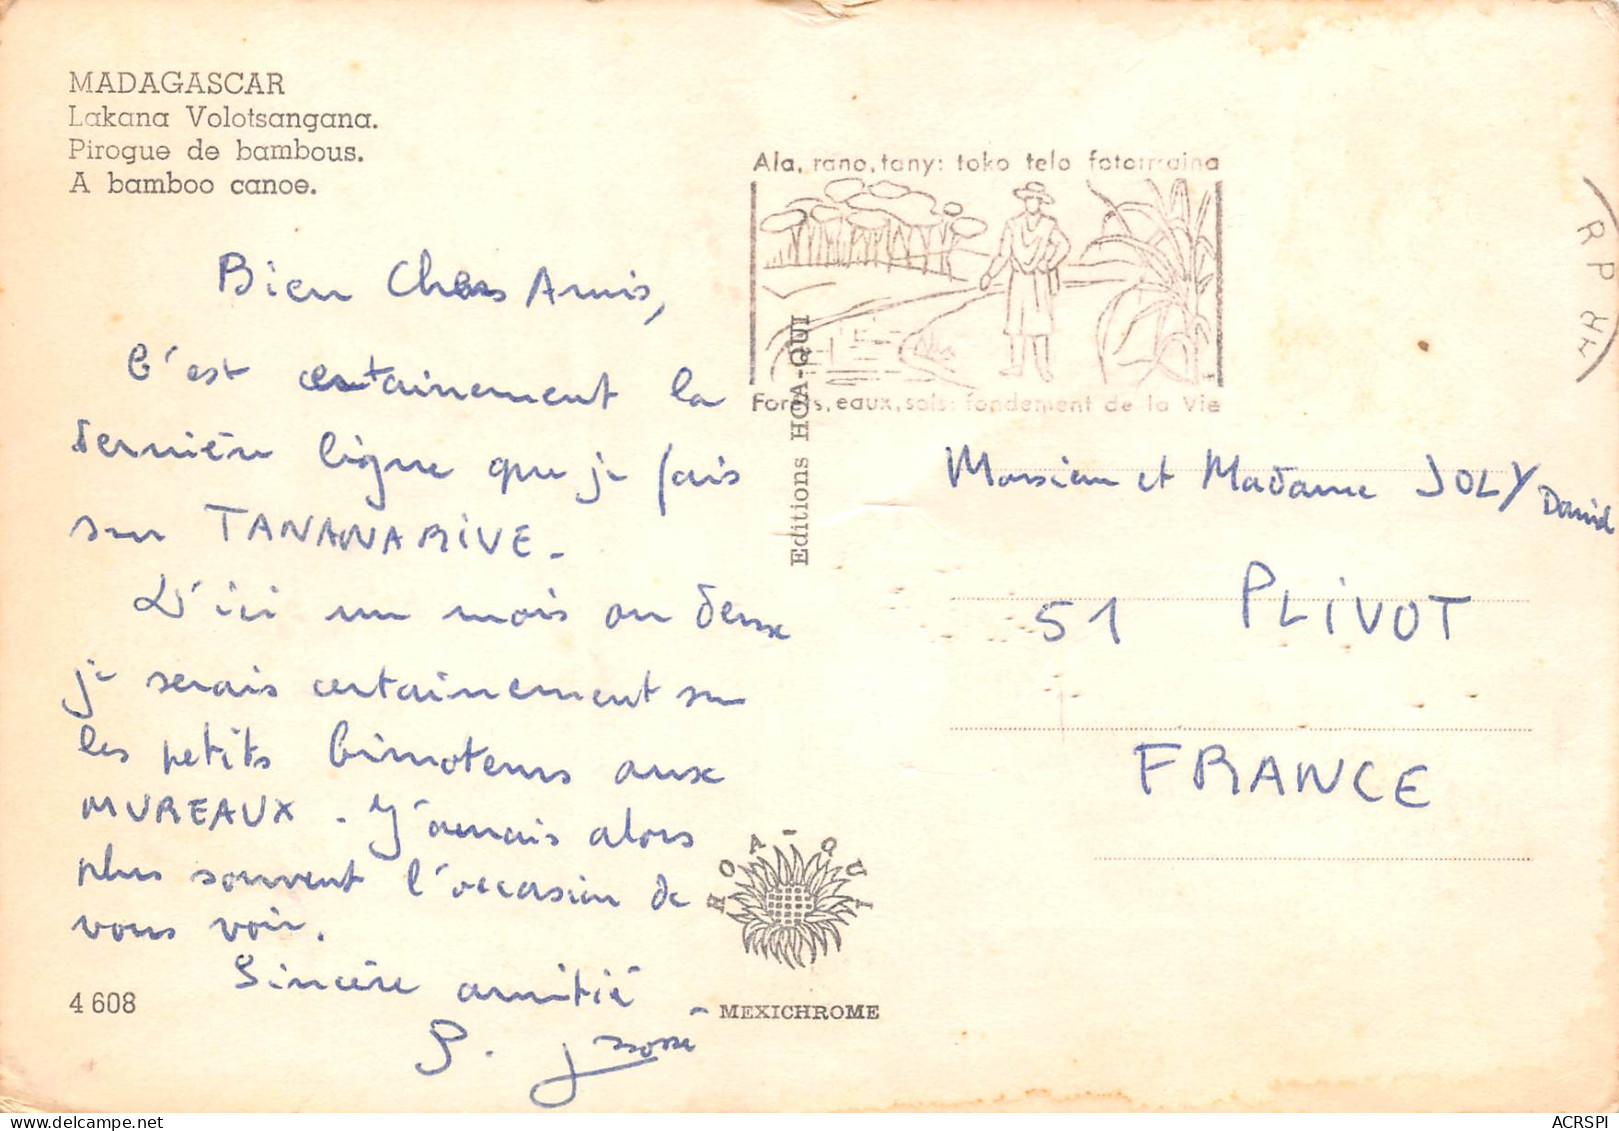 MADAGASCAR
Lakana Volotsangana.
Pirogue de bambous.
A bamboo canoe.
Ala, rano, tany: toko telo fototraina
Forêts, eaux, sols: fondement de la Vie
R P AR
Bien Chers Amis,
C'est certainement la
dernière ligne que je fais
sur TANANARIVE.
D'ici un mois ou deux
je serais certainement sur
les petits bimoteurs aux
MUREAUX. J'aurais alors
plus souvent l'occasion de
vous voir.
Sincère amitié
4 608
Editions HOA-QUI
HOA-QUI
MEXICHROME
Monsieur et Madame JOLY David
51 PLIVOT
FRANCE
ACRSPI